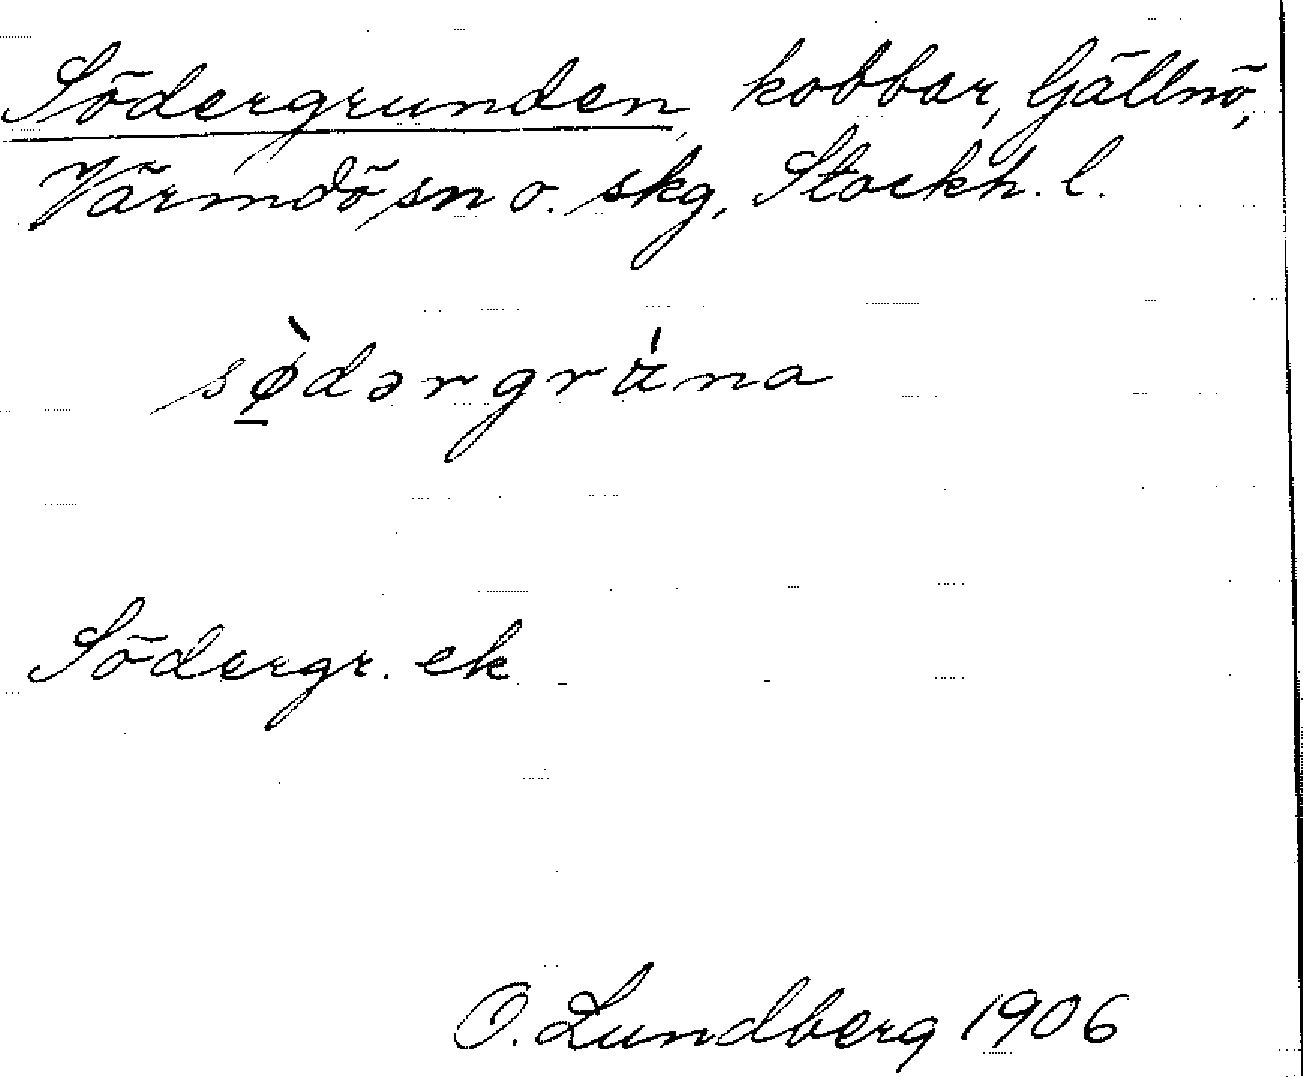 Södergrunden, kobbar, Gällnö,
Värmdö sn o. skg, Stockh. l.
sø̲̀dərgrú̵na
Södergr. ek
O. Lundberg 1906